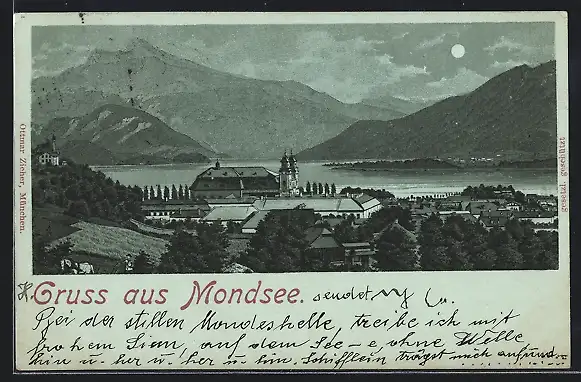 Ottmar Zieher, München.
gesetzl. geschützt
Gruss aus Mondsee. sendet
Bei der stillen Mondeshelle, treibe ich mit
frohem Sinn, auf dem See – e, ohne Welle
hin u. her u. her u. hin, Schifflein trägst mich auf und